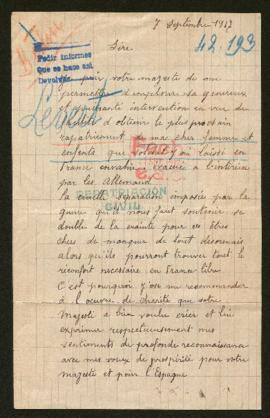 7 Septembre 1917
Sire,
42.193
Pedir informes
Que se hace así
Devolver
votre majesté de me
permettre d'implorer sa généreux
et puissante intervention en vue de
d'obtenir le plus prochain
rapatriement de ma chère femme et
enfants que soldat j'ai laissé en
France envahie évacué à l'intérieur
par les Allemands.
REPATRIACIÓN
CIVIL
la cruelle séparation imposée par la
guerre qu'il nous faut soutenir se
double de la crainte pour ces êtres
chers de manque de tout désormais
alors qu'ils pourront trouver tout le
réconfort nécessaire en France libre
C'est pourquoi j'ose me recommander
à l'oeuvre de charité que votre
Majesté a bien voulu créer et lui
exprimer respectueusement mes
sentiments de profonde reconnaissance
avec mes voeux de prospérité pour votre
majesté et pour l'Espagne